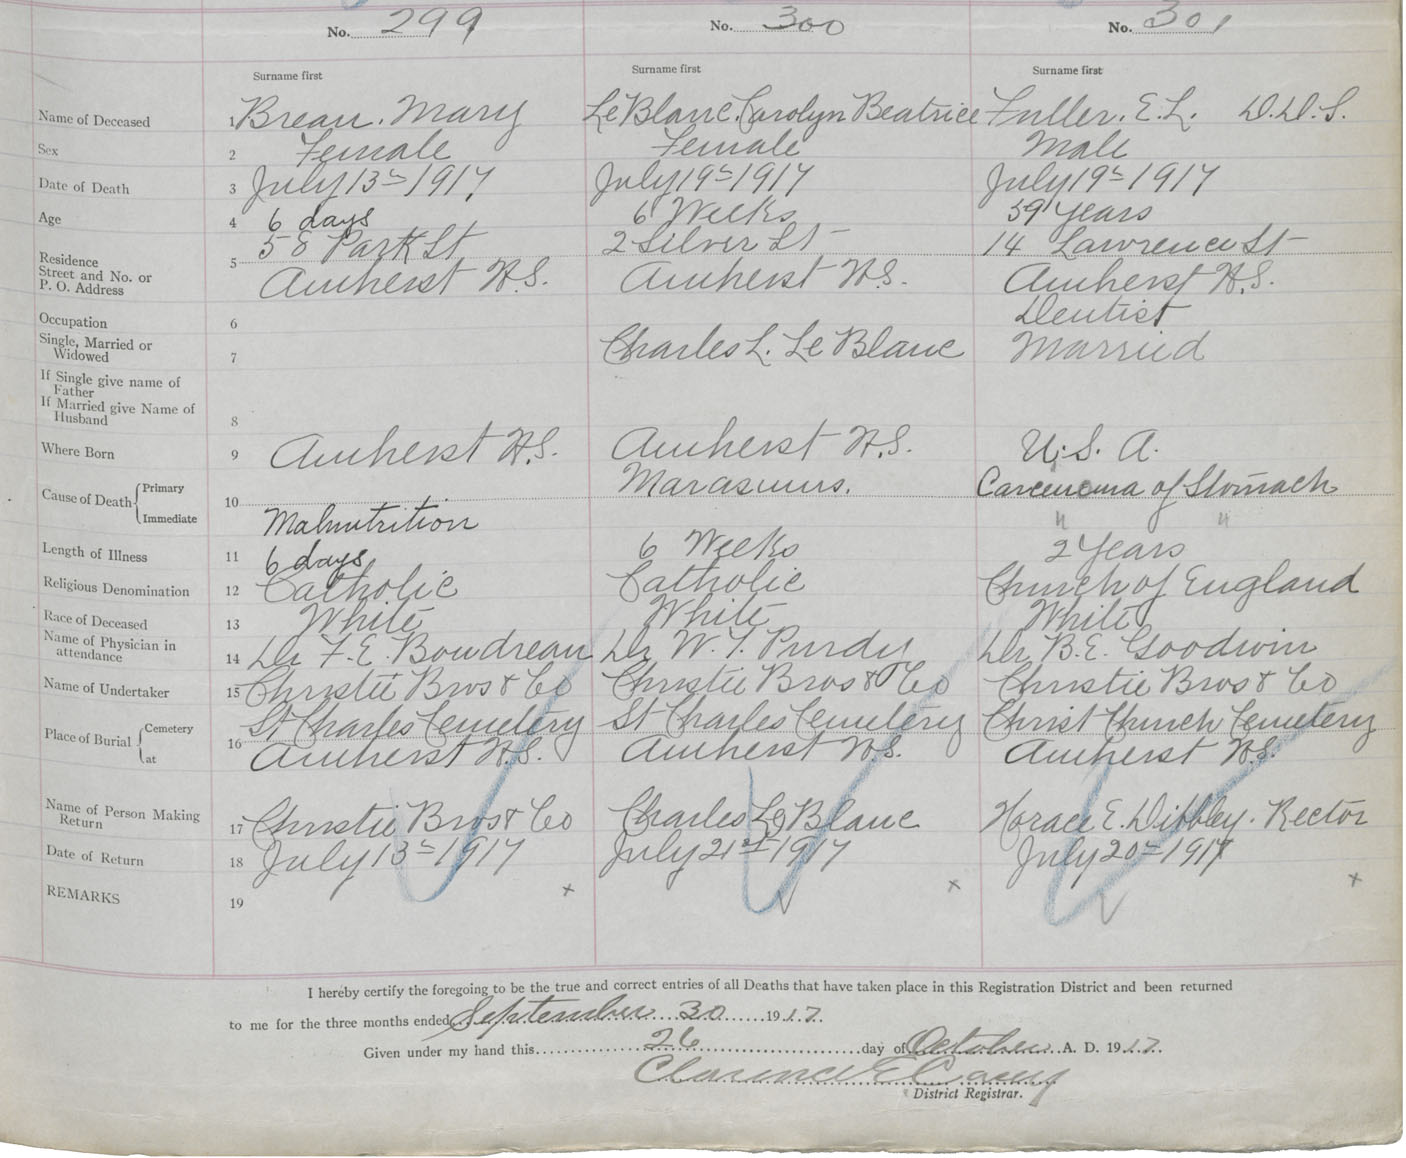 No. 299 No. 300 No. 301
Surname first Surname first Surname first
Name of Deceased 1 Breau. Mary LeBlanc. Carolyn Beatrice Fuller. E. L. D.D.S.
Sex 2 Female Female Male
Date of Death 3 July 13th 1917 July 19th 1917 July 19th 1917
Age 4 6 days 6 Weeks 59 Years
Residence Street and No. or P. O. Address 5 58 Park St 2 Silver St 14 Lawrence St
Amherst N.S. Amherst N.S. Amherst N.S.
Occupation 6 Dentist
Single, Married or Widowed 7 Charles L. Le Blanc Married
If Single give name of Father
If Married give Name of Husband 8
Where Born 9 Amherst N.S. Amherst N.S. U.S. A.
Cause of Death { Primary 10 Marasmus. Carcinoma of Stomach
Immediate Malnutrition " "
Length of Illness 11 6 days 6 Weeks 2 Years
Religious Denomination 12 Catholic Catholic Church of England
Race of Deceased 13 White White White
Name of Physician in attendance 14 Dr F. E. Boudreau Dr W. T. Purdy Dr B. E. Goodwin
Name of Undertaker 15 Christie Bros & Co Christie Bros & Co Christie Bros & Co
Place of Burial { Cemetery 16 St Charles Cemetery St Charles Cemetery Christ Church Cemetery
at Amherst N.S. Amherst N.S. Amherst N.S.
Name of Person Making Return 17 Christie Bros & Co Charles Le Blanc Horace E. Dibbley. Rector
Date of Return 18 July 13th 1917 July 21st 1917 July 20th 1917
REMARKS 19
I hereby certify the foregoing to be the true and correct entries of all Deaths that have taken place in this Registration District and been returned
to me for the three months ended September 30 1917.
Given under my hand this 26 day of October A. D. 1917.
Clarence E Casey
District Registrar.